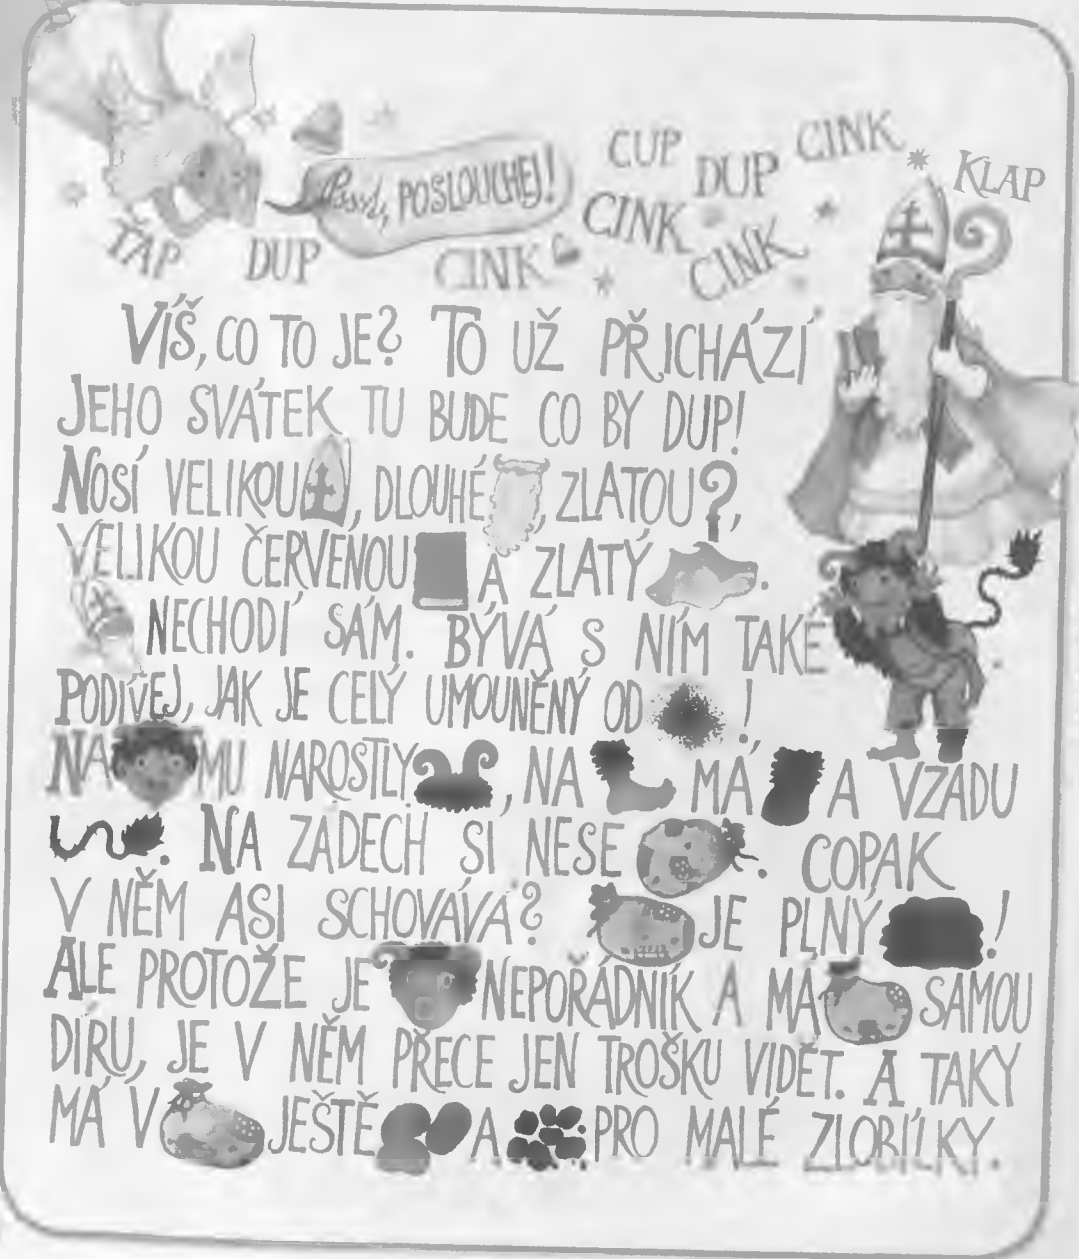 CUP DUP CINK KLAP
Pssst, POSLOUCHEJ!
CINK
ŤAP DUP CINK CINK
VÍŠ, CO TO JE? TO UŽ PŘICHÁZÍ
JEHO SVÁTEK TU BUDE CO BY DUP!
NOSÍ VELIKOU , DLOUHÉ , ZLATOU ,
VELIKOU ČERVENOU A ZLATÝ .
NECHODÍ SÁM. BÝVÁ S NÍM TAKÉ
PODÍVEJ, JAK JE CELÝ UMOUNĚNÝ OD !
NA MU NAROSTLY , NA MÁ A VZADU
. NA ZÁDECH SI NESE . COPAK
V NĚM ASI SCHOVÁVÁ? JE PLNÝ !
ALE PROTOŽE JE NEPOŘÁDNÍK A MÁ SAMOU
DÍRU, JE V NĚM PŘECE JEN TROŠKU VIDĚT. A TAKY
MÁ V JEŠTĚ A PRO MALÉ ZLOBÍLKY.